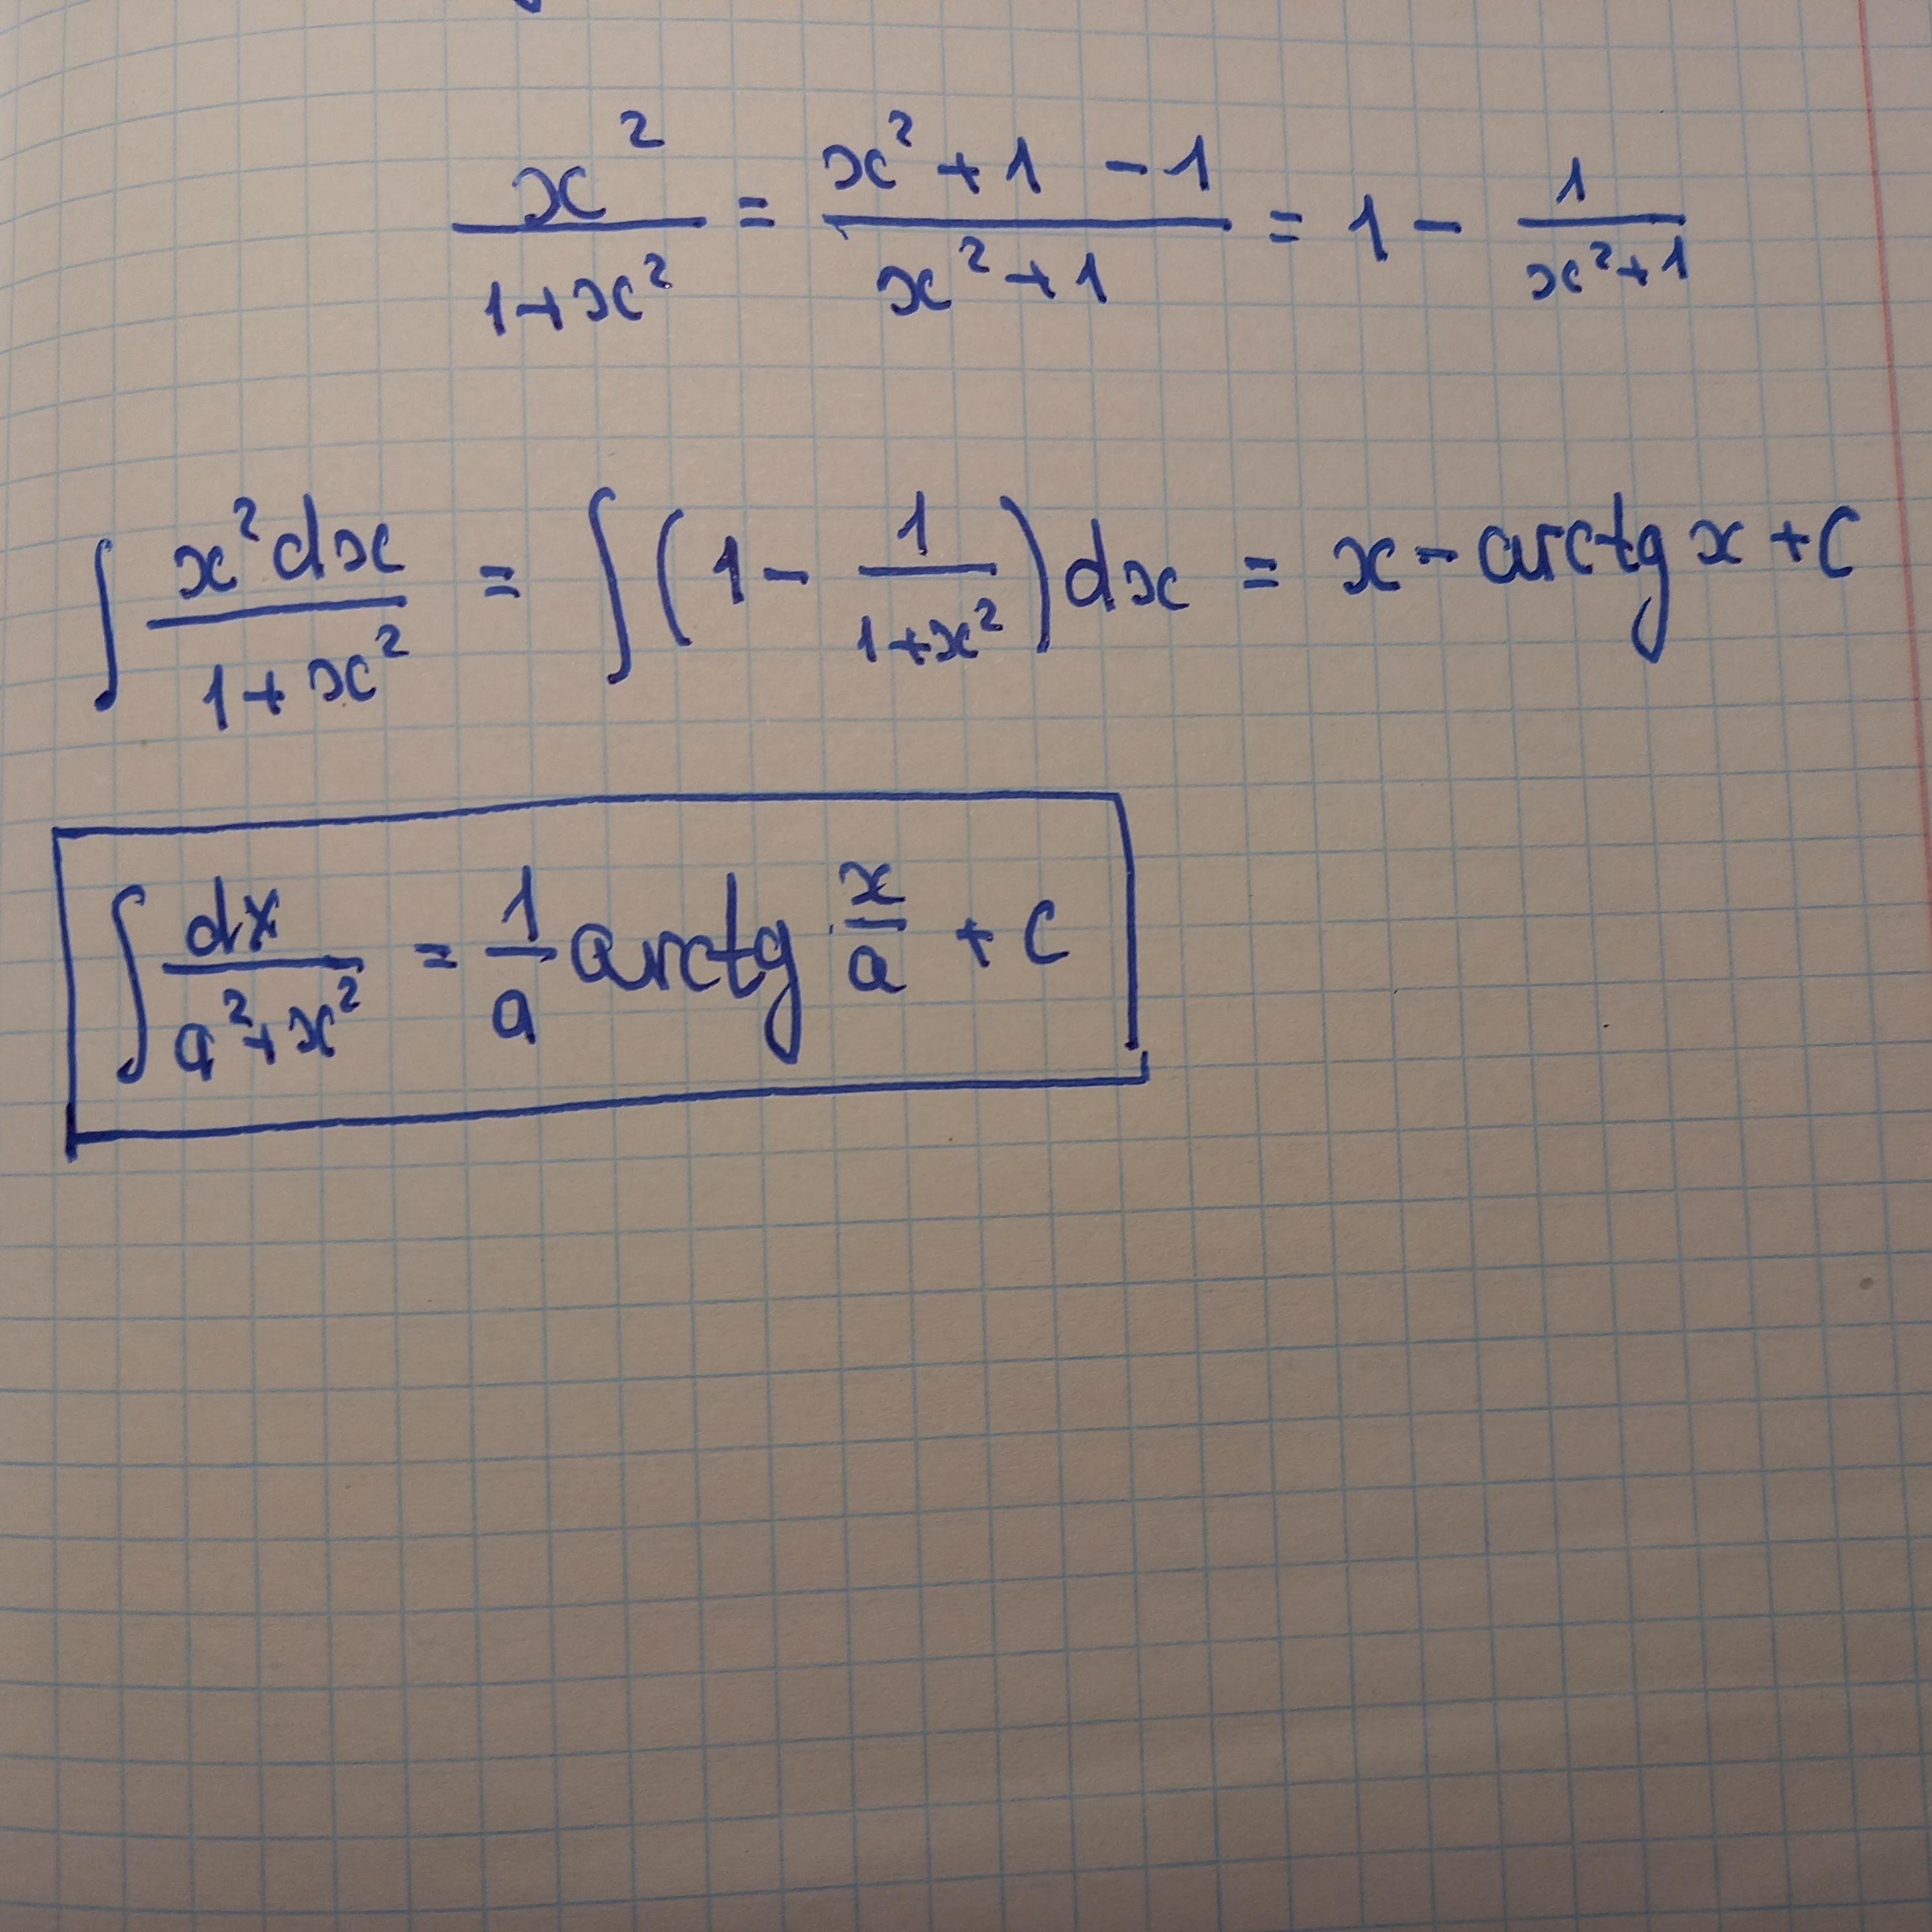 x²/(1+x²) = (x²+1-1)/(x²+1) = 1 - 1/(x²+1)
∫ x²dx/(1+x²) = ∫(1 - 1/(1+x²))dx = x - arctg x + C
∫ dx/(a²+x²) = 1/a arctg x/a + C